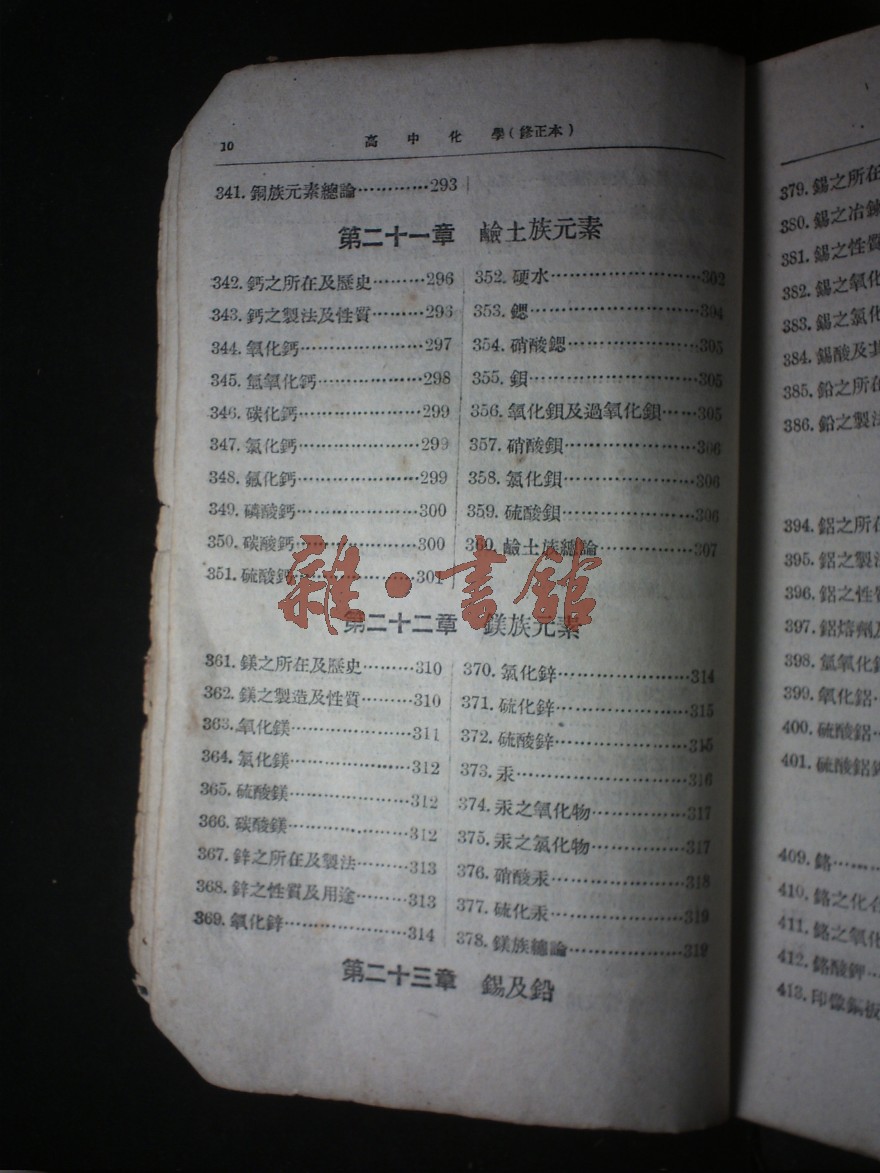 10 高中化學(修正本)
341. 銅族元素總論············293
第二十一章 鹼土族元素
342. 鈣之所在及歷史·········296
343. 鈣之製法及性質·········296
344. 氧化鈣··················297
345. 氫氧化鈣···············298
346. 碳化鈣··················299
347. 氯化鈣··················299
348. 氟化鈣··················299
349. 磷酸鈣··················300
350. 碳酸鈣··················300
351. 硫酸鈣··················301
352. 硬水·····················302
353. 鍶························304
354. 硝酸鍶··················305
355. 鋇························305
356. 氧化鋇及過氧化鋇······305
357. 硝酸鋇··················306
358. 氯化鋇··················306
359. 硫酸鋇··················306
360. 鹼土族總論············307
雜·書館
第二十二章 鎂族元素
361. 鎂之所在及歷史·········310
362. 鎂之製造及性質·········310
363. 氧化鎂··················311
364. 氯化鎂··················312
365. 硫酸鎂··················312
366. 碳酸鎂··················312
367. 鋅之所在及製法·········313
368. 鋅之性質及用途·········313
369. 氧化鋅··················314
370. 氯化鋅··················314
371. 硫化鋅··················315
372. 硫酸鋅··················315
373. 汞························316
374. 汞之氧化物············317
375. 汞之氯化物············317
376. 硝酸汞··················318
377. 硫化汞··················319
378. 鎂族總論···············319
第二十三章 錫及鉛
379. 錫之所在
380. 錫之冶鍊
381. 錫之性質
382. 錫之氧化
383. 錫之氯化
384. 錫酸及其
385. 鉛之所在
386. 鉛之製法
394. 鋁之所在
395. 鋁之製法
396. 鋁之性質
397. 鋁熔劑及
398. 氫氧化鋁
399. 氧化鋁··
400. 硫酸鋁··
401. 硫酸鋁鉀
409. 鉻······
410. 鉻之化合
411. 鉻之氧化
412. 鉻酸鉀···
413. 印像鋅板